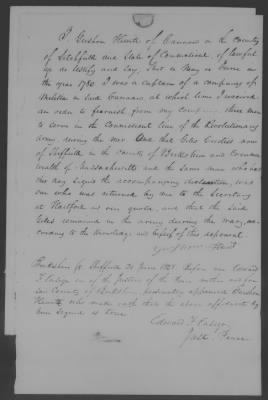 I Gershom Hewitt of Canaan in the County
of Litchfield and State of Connecticut, of lawful
age do testify and say, that in May or June in
the year 1780 I was a captain of a company of
Militia in said Canaan at which time I received
an order to furnish from my company three men
to serve in the Connecticut line of the Revolutionary
Army during the war And that Giles
of Sheffield in the County of Berkshire and Common
wealth of Massachusetts and the same man who has
this day signed the accompanying declaration, was
one who was returned by me to the Secretary
at Hartford as our quota, and that the said
Giles remained in the army during the war, ac-
cording to the knowledge and belief of this deponent
Gershom Hewitt
Berkshire ss Sheffield 20 June 18 Before me Edward
F. one of the Justices of the Peace within and for
said County of Berkshire, personally appeared Gershom
Hewitt who made oath that the above affidavit by
him signed is true
Edward F.
Just. Peace